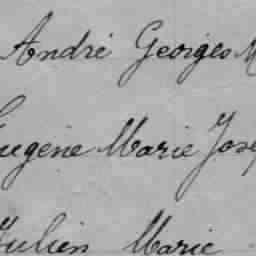 André Georges M
Eugène Marie Jose
Julien Marie